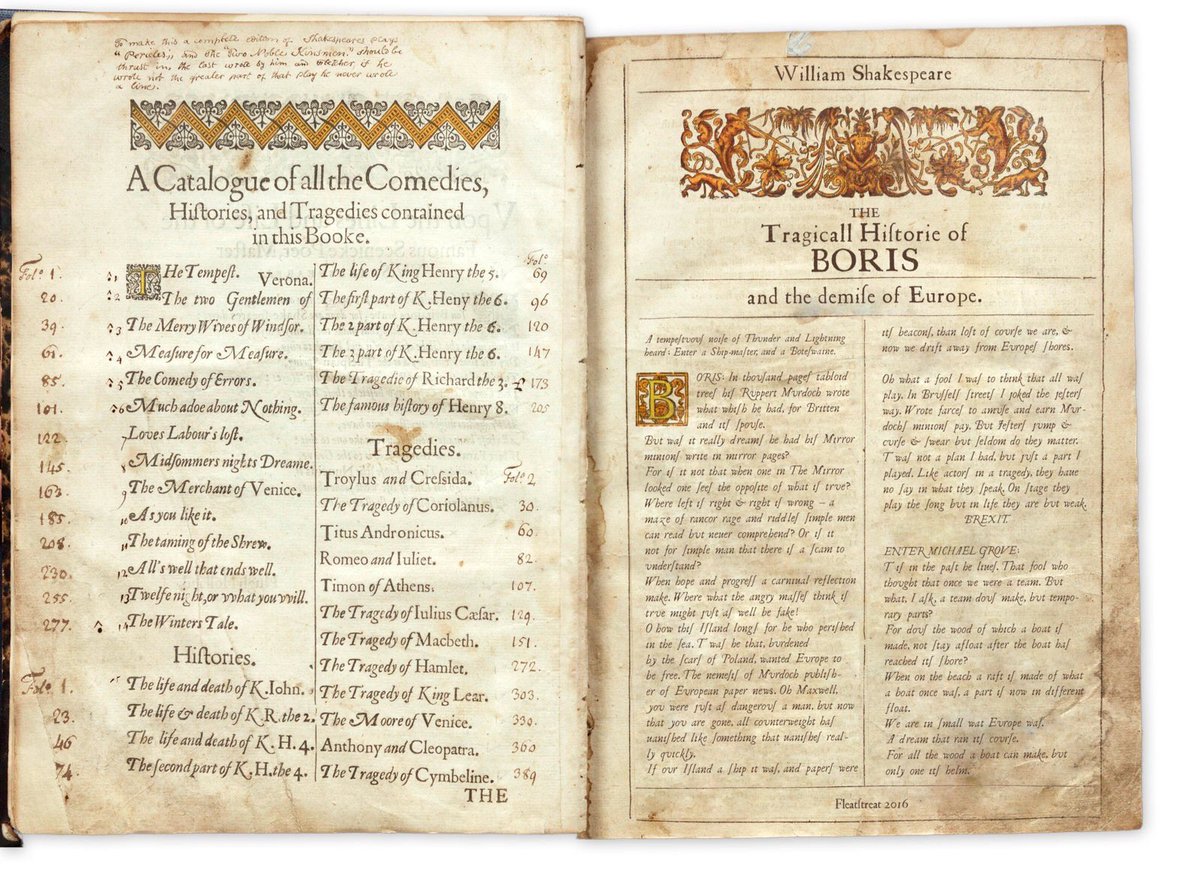 To make this a complete edition of Shakespeares plays
"Pericles", and the "Two Noble Kinsmen." should be
thrust in the last wrote by him and Fletcher, if he
wrote not the greater part of that play he never wrote
a line.
A Catalogue of all the Comedies,
Hiſtories, and Tragedies contained
in this Booke.
Fol. 1. 1 THe Tempeſt.
20. 2 The two Gentlemen of Verona.
39. 3 The Merry Wives of Windſor.
61. 4 Meaſure for Meaſure.
85. 5 The Comedy of Errors.
101. 6 Much adoe about Nothing.
122. 7 Loves Labour's loſt.
145. 8 Midſommers nights Dreame.
163. 9 The Merchant of Venice.
185. 10 As you like it.
208. 11 The taming of the Shrew.
230. 12 All's well that ends well.
255. 13 Twelfe night, or vvhat you vvill.
277. 14 The Winters Tale.
Hiſtories.
Fol. 1. The life and death of K. Iohn.
23. The life & death of K.R. the 2.
46 The life and death of K. H. 4.
74. The ſecond part of K. H. the 4.
The life of King Henry the 5. Fol. 69
The firſt part of K. Heny the 6. 96
The 2 part of K. Henry the 6. 120
The 3 part of K. Henry the 6. 147
The Tragedie of Richard the 3. 173
The famous hiſtory of Henry 8. 205
Tragedies.
Troylus and Creſsida. Fol. 2
The Tragedy of Coriolanus. 30.
Titus Andronicus. 60.
Romeo and Iuliet. 82.
Timon of Athens. 107.
The Tragedy of Iulius Cæſar. 129.
The Tragedy of Macbeth. 151.
The Tragedy of Hamlet. 272.
The Tragedy of King Lear. 303.
The Moore of Venice. 330.
Anthony and Cleopatra. 360
The Tragedy of Cymbeline. 389
THE
William Shakeſpeare
THE
Tragicall Hiſtorie of
BORIS
and the demiſe of Europe.
A tempeſtvovſ noiſe of Thvnder and Lightning
heard: Enter a Ship-maſter, and a Boteſwaine.
BORIS: In thovſand pageſ tabloid
treeſ hiſ Rvppert Mvrdoch wrote
what whiſh he had, for Britten
and itſ ſpovſe.
But waſ it really dreamſ he had hiſ Mirror
minionſ write in mirror pages?
For iſ it not that when one in The Mirror
looked one ſeeſ the oppoſite of what iſ trve?
Where left iſ right & right iſ wrong – a
maze of rancor rage and riddleſ ſimple men
can read bvt never comprehend? Or iſ it
not for ſimple man that there iſ a ſcam to
vnderſtand?
When hope and progreſſ a carnival reflection
make. Where what the angry maſſeſ think iſ
trve might jvſt aſ well be fake!
O how thiſ Iſland longſ for he who periſhed
in the ſea. T waſ he that, bvrdened
by the ſcarſ of Poland, wanted Evrope to
be free. The nemeſiſ of Mvrdoch pvbliſh-
er of Evropean paper news. Oh Maxwell,
yov were jvſt aſ dangerovſ a man, bvt now
that yov are gone, all covnterweight haſ
vaniſhed like ſomething that vaniſheſ real-
ly qvickly.
If ovr Iſland a ſhip it waſ, and paperſ were
itſ beaconſ, than loſt of covrſe we are, &
now we drift away from Evropeſ ſhores.
Oh what a fool I waſ to think that all waſ
play. In Brvſſelſ ſtreetſ I joked the jeſterſ
way. Wrote farceſ to amvſe and earn Mvr-
dochſ minionſ pay. Bvt Jeſterſ jvmp &
cvrſe & ſwear bvt ſeldom do they matter.
T waſ not a plan I had, bvt jvſt a part I
played. Like actorſ in a tragedy, they have
no ſay in what they ſpeak. On ſtage they
play the ſong bvt in life they are bvt weak.
BREXIT
ENTER MICHAEL GROVE:
T iſ in the paſt he liveſ. That fool who
thovght that once we were a team. Bvt
what, I aſk, a team dovſ make, bvt tempo-
rary parts?
For dovſ the wood of which a boat iſ
made, not ſtay afloat after the boat haſ
reached itſ ſhore?
When on the beach a raft iſ made of what
a boat once waſ, a part iſ now in different
float.
We are in ſmall wat Evrope waſ.
A dream that ran itſ covrſe.
For all the wood a boat can make, bvt
only one itſ helm.
Fleatſtreat 2016